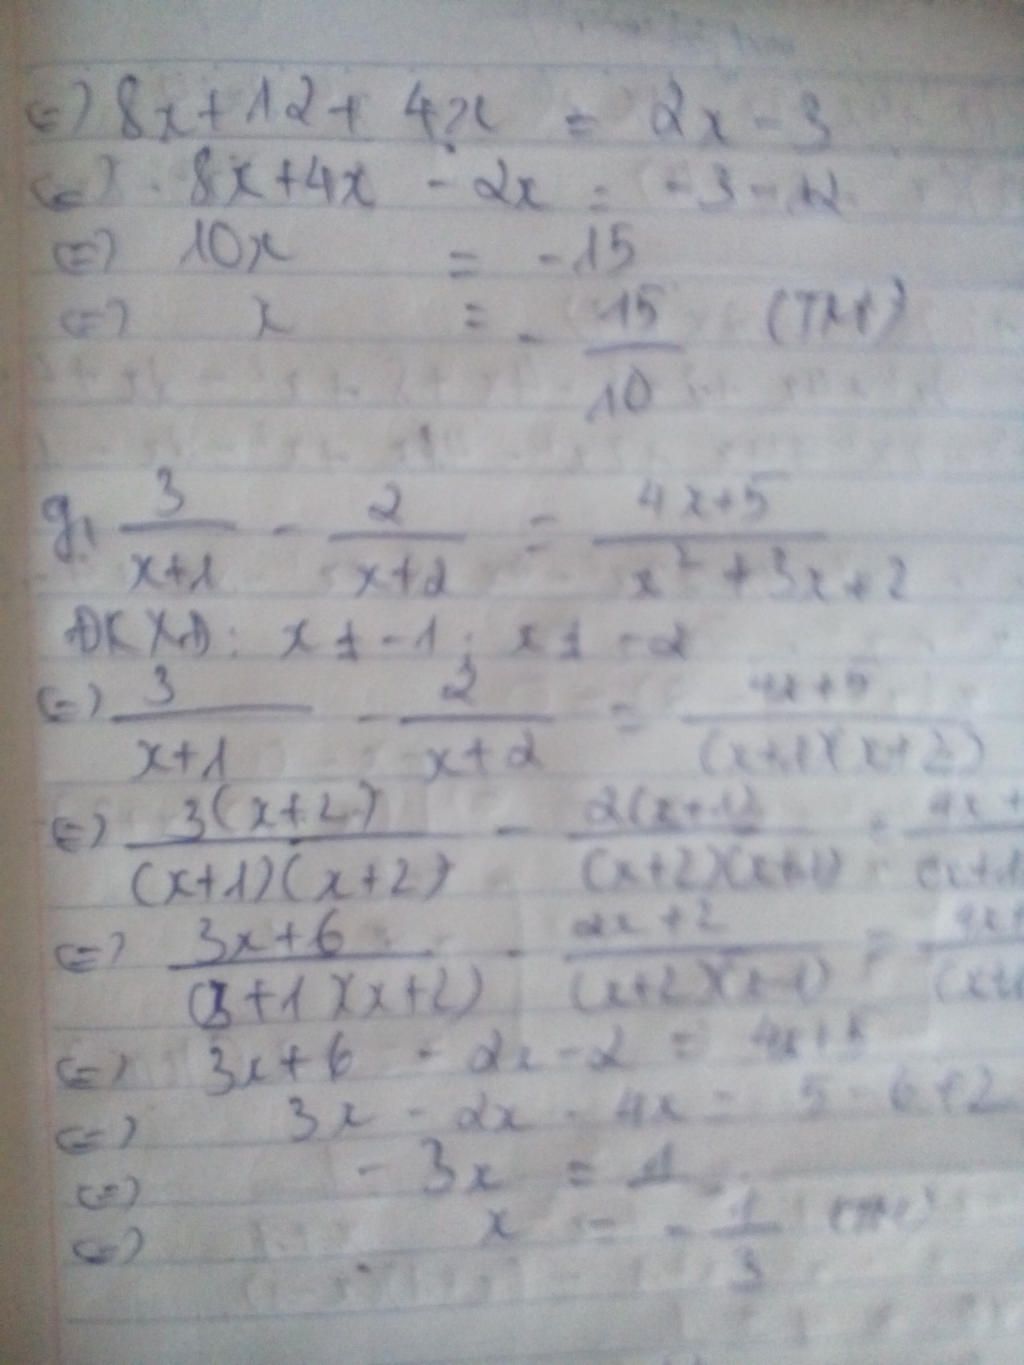 <=> 8x + 12 + 4x = 2x - 3
<=> 8x + 4x - 2x = -3 - 12
<=> 10x = -15
<=> x = - 15/10 (TM)
g, 3/(x+1) - 2/(x+2) = (4x+5)/(x² + 3x + 2)
ĐKXĐ: x ≠ -1; x ≠ -2
<=> 3/(x+1) - 2/(x+2) = (4x+5)/((x+1)(x+2))
<=> 3(x+2)/((x+1)(x+2)) - 2(x+1)/((x+2)(x+1)) = 4x+/(x+1
<=> (3x+6)/((x+1)(x+2)) - (2x+2)/((x+2)(x+1)) = 4x+/(x+1
<=> 3x + 6 - 2x - 2 = 4x + 5
<=> 3x - 2x - 4x = 5 - 6 + 2
<=> -3x = 1
<=> x = - 1/3 (TM)